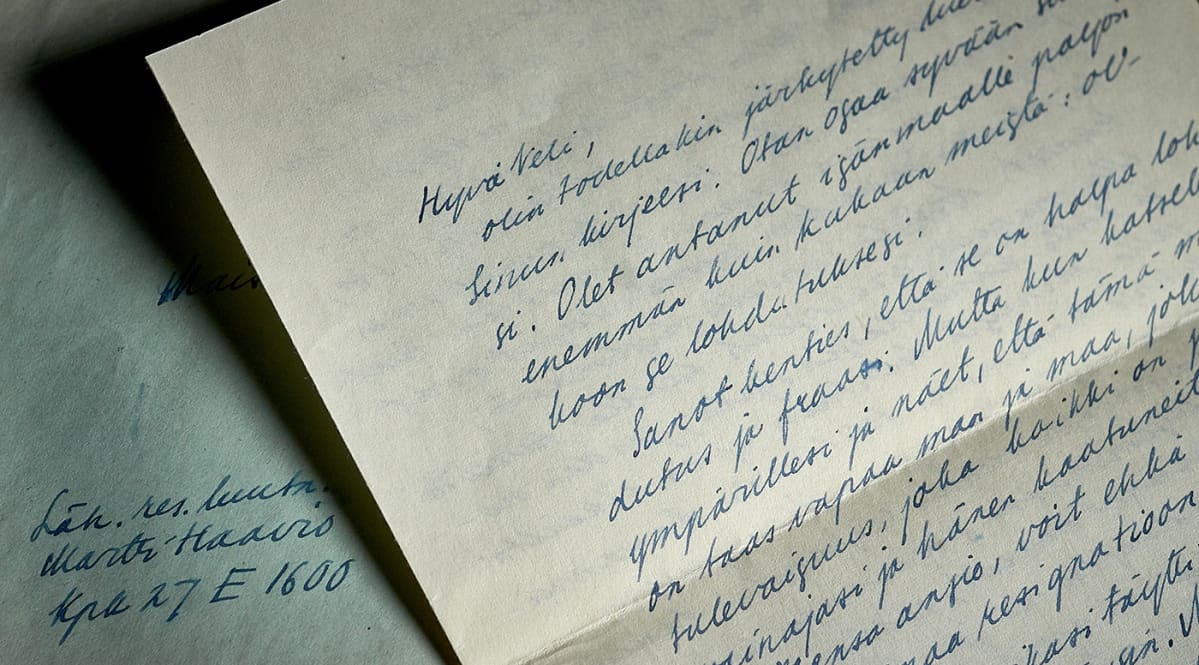 Hyvä Veli,
olin todellakin järkytetty
Sinun kirjeesi. Otan osaa syvään
si. Olet antanut isänmaalle paljon
enemmän kuin kukaan meistä: ol-
koon se lohdutuksesi.
Sanot kenties, että se on halpa
dutus ja fraasi. Mutta kun
ympärillesi ja näet, että tämä
on taas vapaa maa ja maa, jolla
tulevaisuus, joka kaikki on
vainajasi ja hänen
ansio, voit ehkä
resignatioon
Mais
Läh. res. luutn.
Martti Haavio
Kpa 27 E 1600